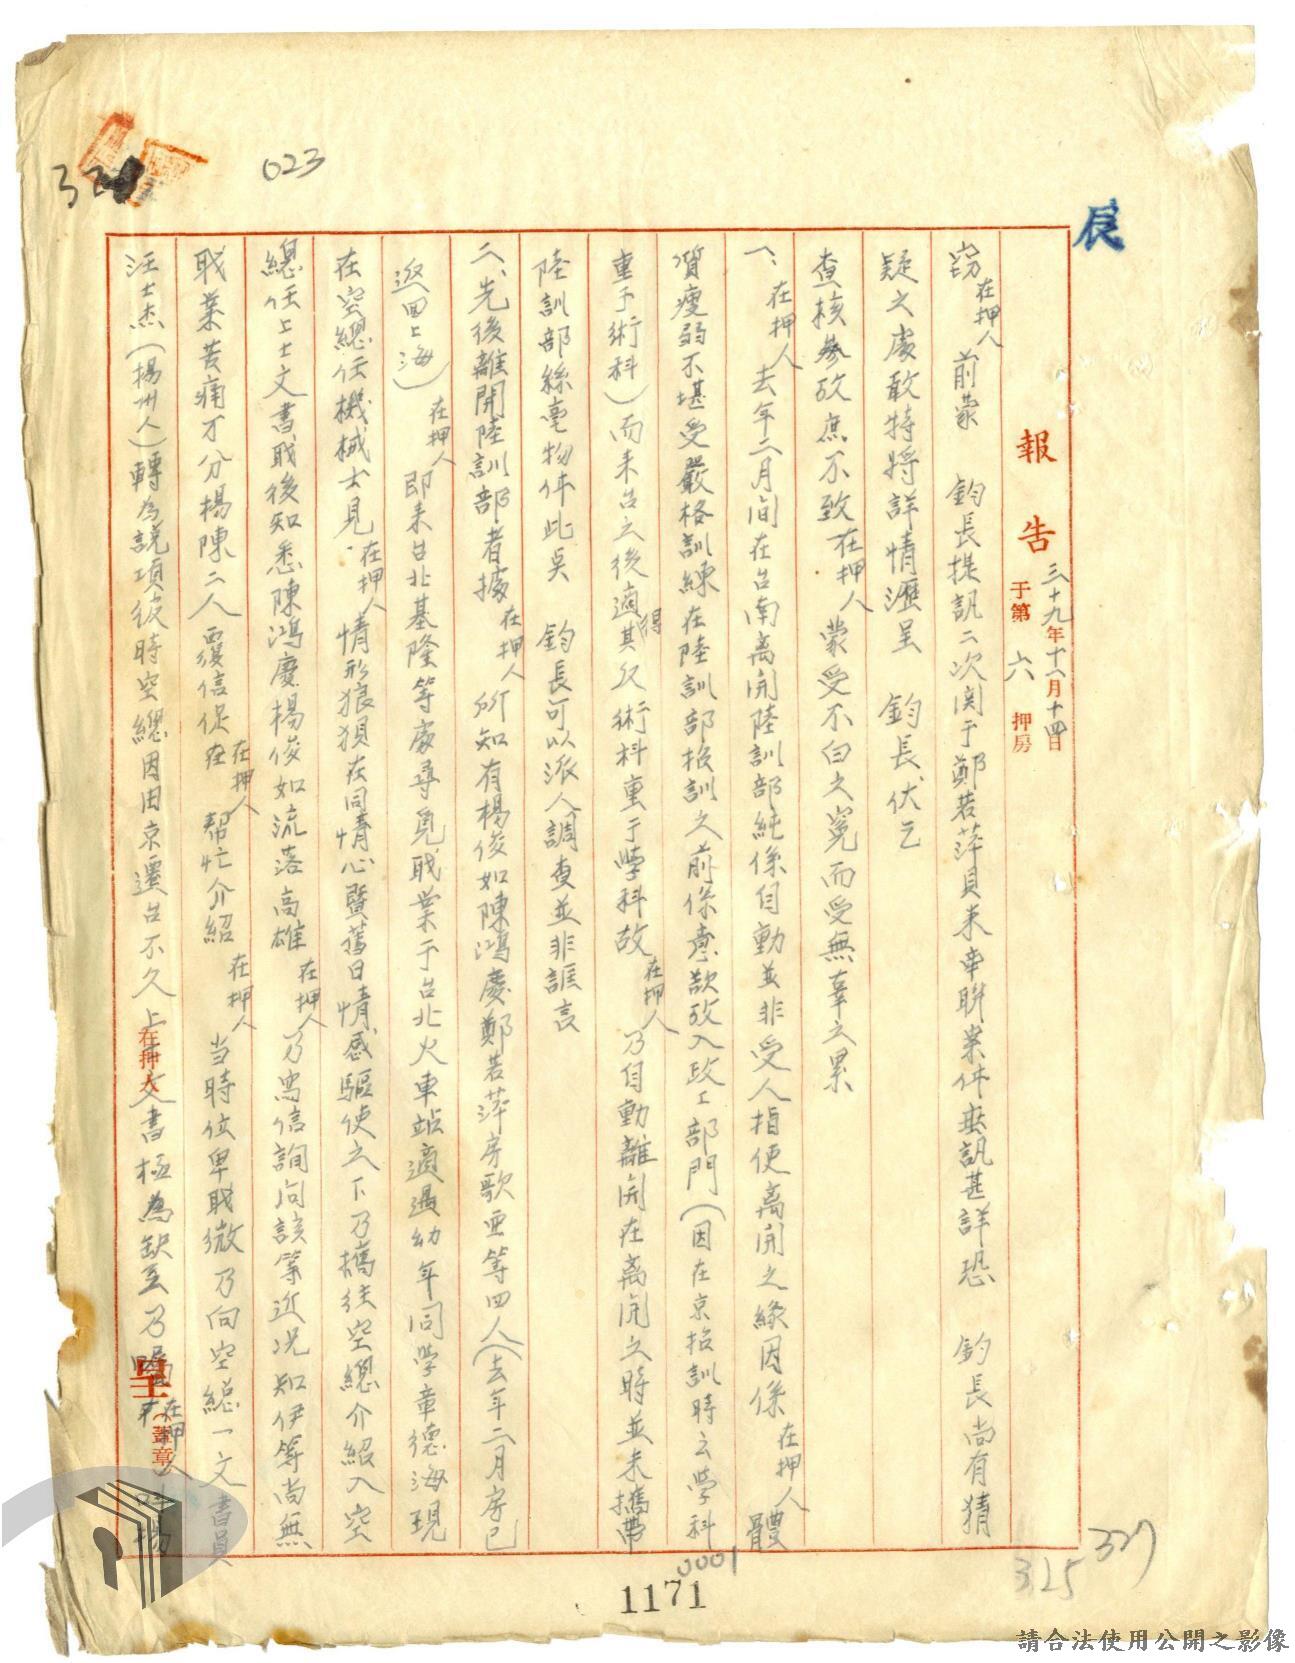 023
辰
報告
三十九年十一月十四日
于第六押房
竊在押人前蒙　鈞長提訊二次関于鄭若萍貝來牽聯案件無訊甚詳恐　鈞長尚有猜
疑之處敢特將詳情瀝呈　鈞長、伏乞
查核參攷庶不致在押人蒙受不白之冤而受無辜之累
一、在押人去年二月间在台南离開陸訓部純係自動並非受人指使离開之緣因係在押人體
質瘦弱不堪受嚴格訓練在陸訓部招訓之前係意欲攷入政工部門（因在京招訓時云學科
重于術科）而來台之後適得其反術科重于學科故在押人乃自動離開在离開之時並未攜帶
陸訓部絲毫物件此吳　鈞長可以派人調查並非誑言
二、先後離開陸訓部者據在押人所知有楊俊如陳鴻慶鄭若萍房歌亜等四人（去年二月房已
返回上海）在押人即來台北基隆等處尋覓職業于台北火車站適遇幼年同學章德海現
在空總任機械士見在押人情形狼狽在同情心暨舊日情感驅使之下乃攜往空總介紹入空
總任上士文書職後知悉陳鴻慶楊俊如流落高雄在押人乃寫信詢问該等近况知伊等尚無
職業苦痛万分楊陳二人覆信促在在押人帮忙介紹在押人当時位卑職微乃向空総一文書員
汪士杰（揚州人）轉為說項彼時空總因由京遷台不久上士文書極為缺乏乃囑在押人叫楊
在押人
呈
（蓋章）
0001
1171
325
327
請合法使用公開之影像